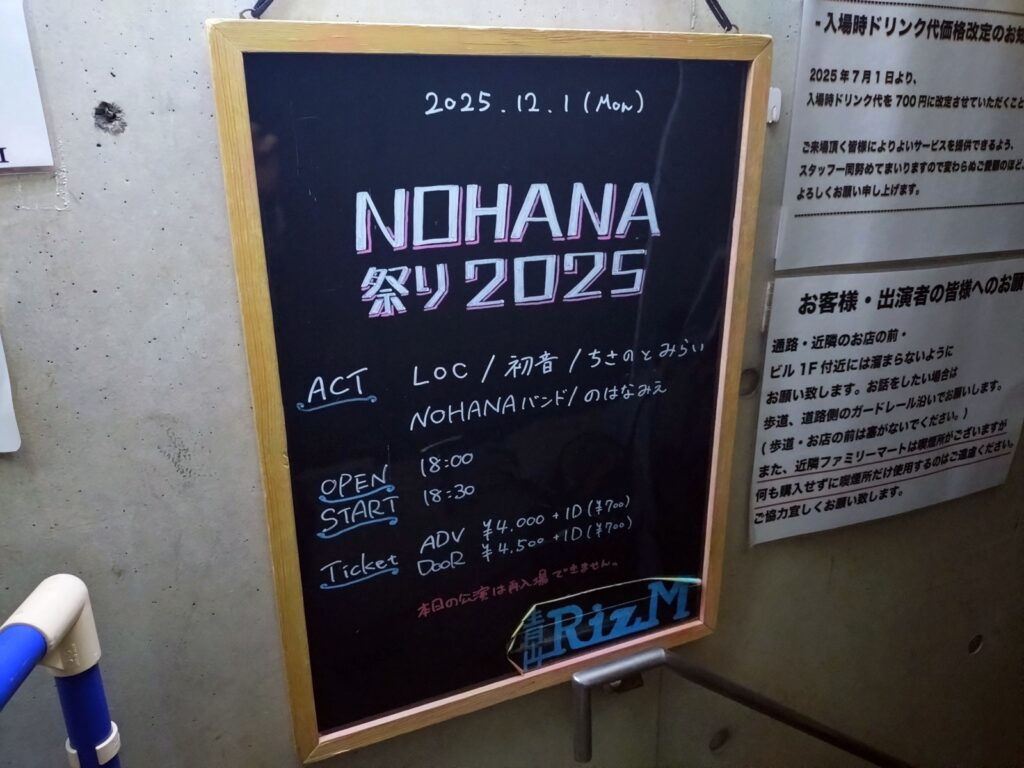 2025.12.1 (Mon)
NOHANA
祭り2025
ACT LOC / 初音 / ちさのとみらい
NOHANAバンド / のはなみえ
OPEN 18:00
START 18:30
Ticket ADV ¥4.000 + 1D (¥700)
DooR ¥4.500 + 1D (¥700)
本日の公演は再入場できません。
青山 RizM
- 入場時ドリンク代価格改定のお知
2025年7月1日より、
入場時ドリンク代を700円に改定させていただくこと
ご来場頂く皆様によりよいサービスを提供できるよう、
スタッフ一同努めてまいりますので変わらぬご愛顧のほど、
よろしくお願い申し上げます。
お客様・出演者の皆様へのお願
通路・近隣のお店の前・
ビル1F付近には溜まらないように
お願い致します。お話をしたい場合は
歩道、道路側のガードレール沿いでお願いします。
(歩道・お店の前は塞がないでください。)
また、近隣ファミリーマートは喫煙所がございますが
何も購入せずに喫煙所だけ使用するのはご遠慮ください。
ご協力宜しくお願い致します。